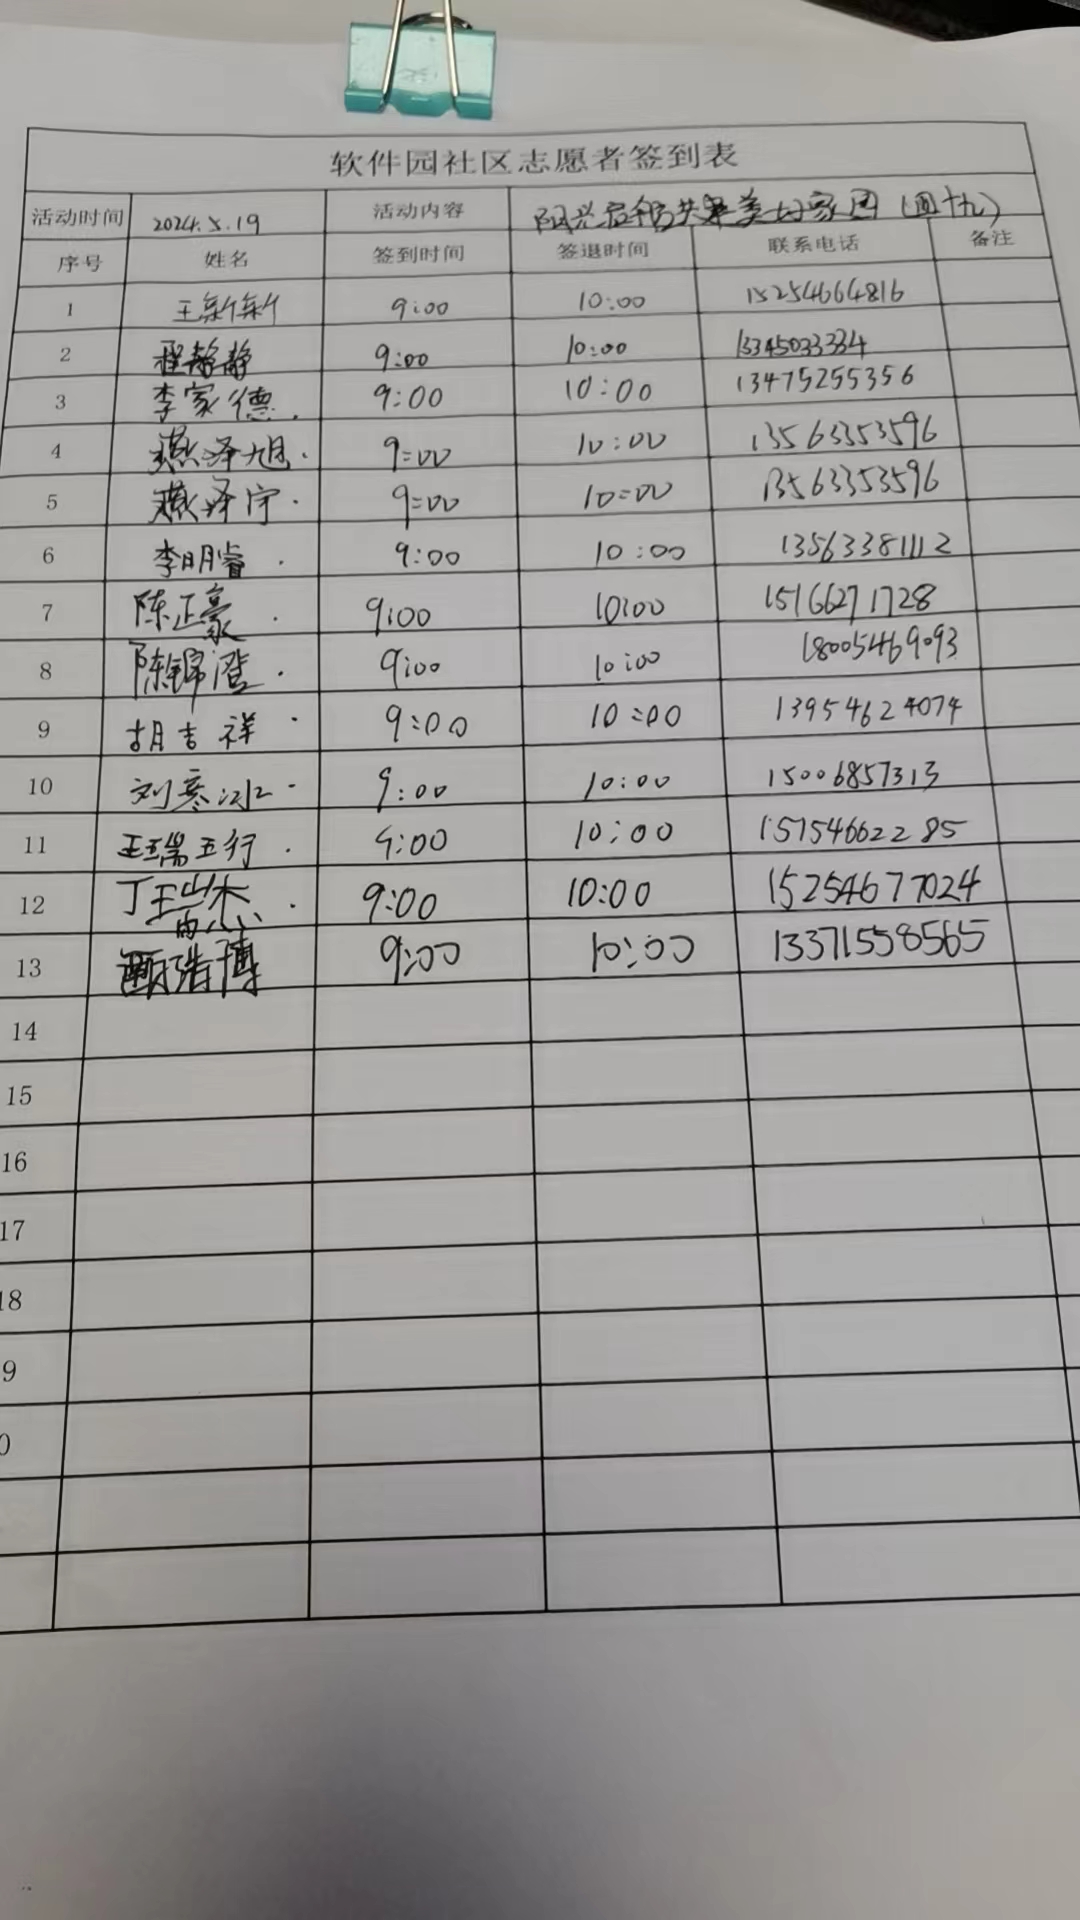 软件园社区志愿者签到表
活动时间 2024.5.19 活动内容 美好家园
序号 姓名 签到时间 签退时间 联系电话 备注
1 王新新 9:00 10:00 15254664816
2 程静静 9:00 10:00 13345033334
3 李家德 9:00 10:00 13475255356
4 燕泽旭 9:00 10:00 13563353596
5 燕泽宇 9:00 10:00 13563353596
6 李明睿 9:00 10:00 13563381112
7 陈正豪 9:00 10:00 15166271728
8 陈锦澄 9:00 10:00 18005469093
9 胡吉祥 9:00 10:00 13954624074
10 刘寒冰 9:00 10:00 15006857313
11 王瑞珩 9:00 10:00 15754662285
12 丁 杰 9:00 10:00 15254677024
13 浩博 9:00 10:00 13371558565
14
15
16
17
18
9
0